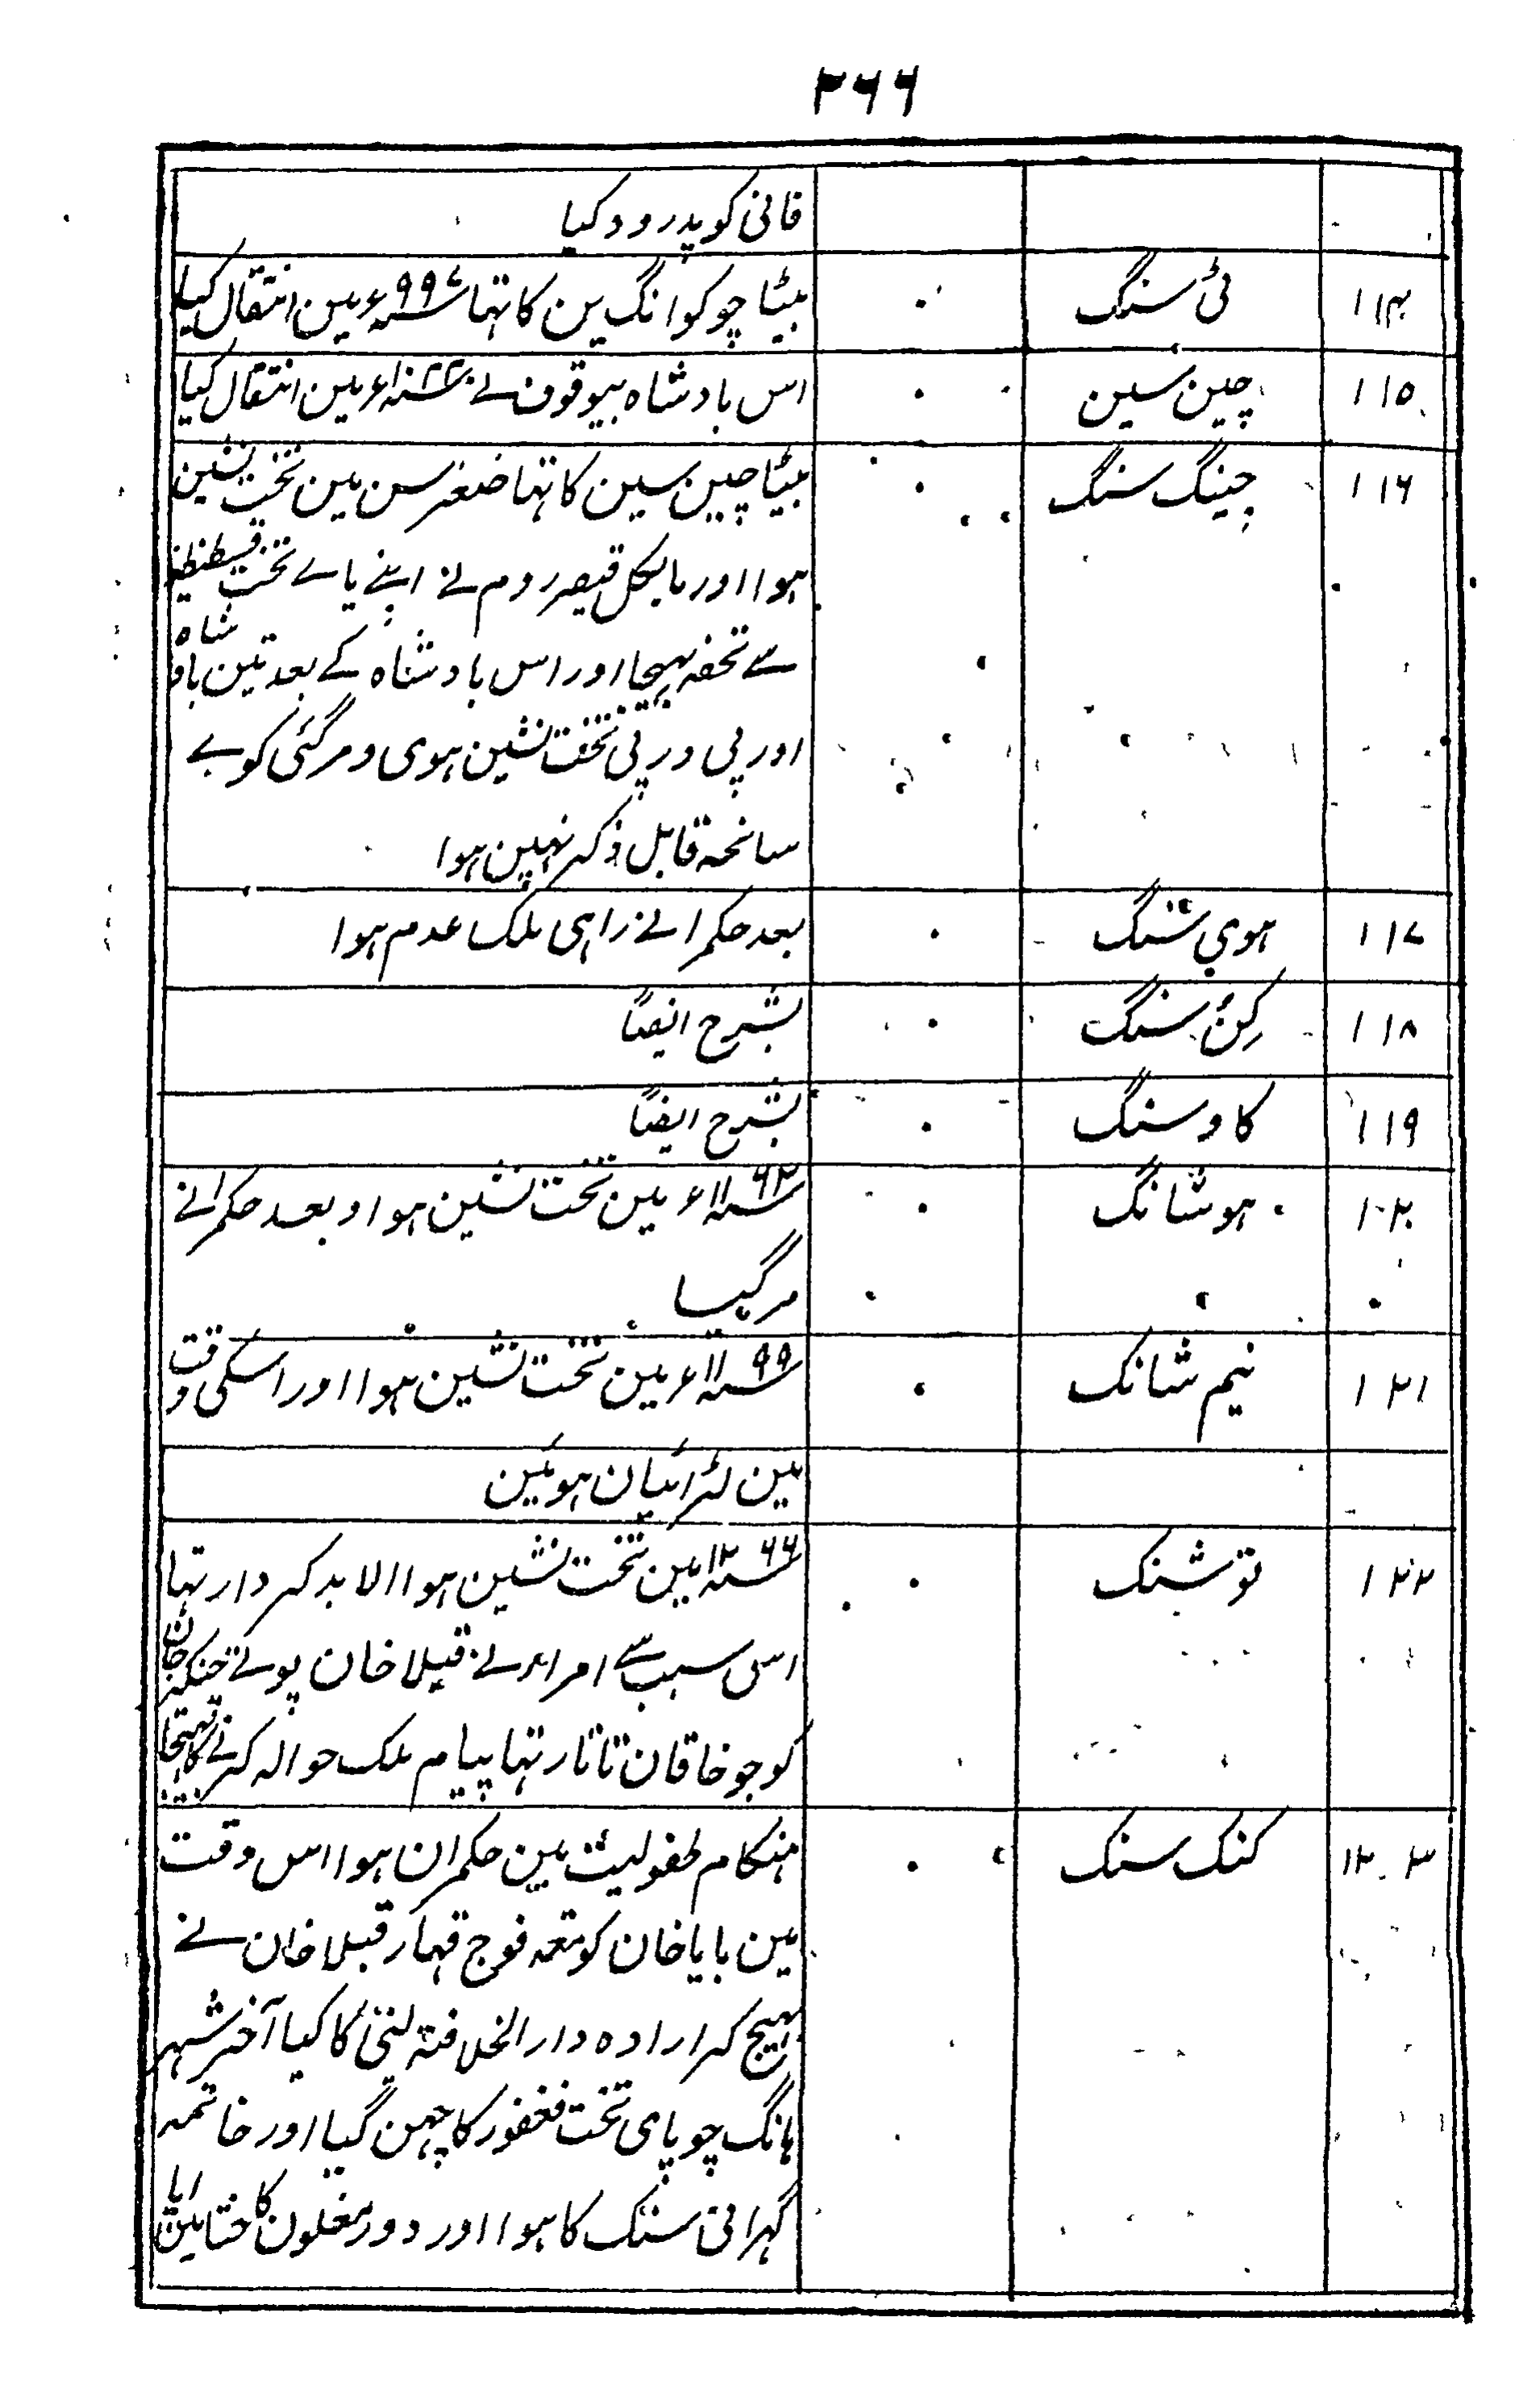 ۳۶۶
فانی کو پدرود کیا
۱۱۴ ٹی سنگ ۰ بیٹا چو کوانگ ین کا تہا سنہ ۹۹۷ء مین انتقال کیا
۱۱۵ چین سین ۰ اس بادشاہ بیوقوف نے سنہ ۱۰۲۲ء مین انتقال کیا
۱۱۶ چینگ سنگ ۰ بیٹا چین سین کا تہا صغر سن مین تخت نشین
ہوا اور مایکل قیصر روم نے اپنے پاے تخت قسطنطنیہ
سے تحفہ بہیجا اور اس بادشاہ کے بعد تین بادشاہ
اور پی در پی تخت نشین ہوی و مر گئی کوے
سانحہ قابل ذکر نہین ہوا
۱۱۷ ہوی سنگ ۰ بعد حکمرانے راہی ملک عدم ہوا
۱۱۸ کِنُ سنگ ۰ بشرح ایضاً
۱۱۹ کاو سنگ ۰ بشرح ایضاً
۱۲۰ ہو شانگ ۰ سنہ ۱۱۶۲ء مین تخت نشین ہوا و بعد حکمرانے
مر گیا
۱۲۱ نیم شانک ۰ سنہ ۱۱۹۹ء مین تخت نشین ہوا اور اسکی وقت
مین لڑائیان ہوئین
۱۲۲ تو شنک ۰ سنہ ۱۲۶۶ مین تخت نشین ہوا الا بدکردار تہا
اسی سبب سے امراء نے قبلا خان پوتے چنگیز خان
کو جو خاقان تاتار تہا پیام ملک حوالہ کرنے کا بہیجا
۱۲۳ کنک سنک ۰ ہنکام طفولیت مین حکمران ہوا اس وقت
مین بایا خان کو معہ فوج قہار قبلا خان نے
بہیج کر ارادہ دار الخلافتہ لینی کا کیا آخر شہر
ہانگ چو پای تخت فغفور کا چہن گیا اور خاتمہ
گہرانی سنک کا ہوا اور دور مغلون کا ختا مین ایا